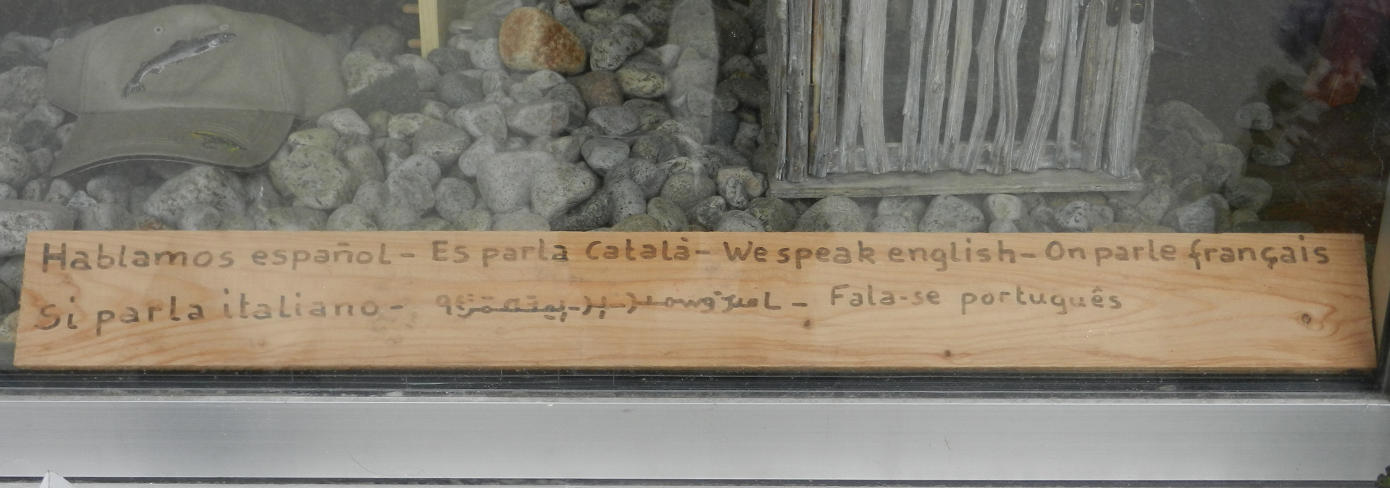 Hablamos español - Es parla Català - We speak english - On parle français
Si parla italiano - - Fala-se português